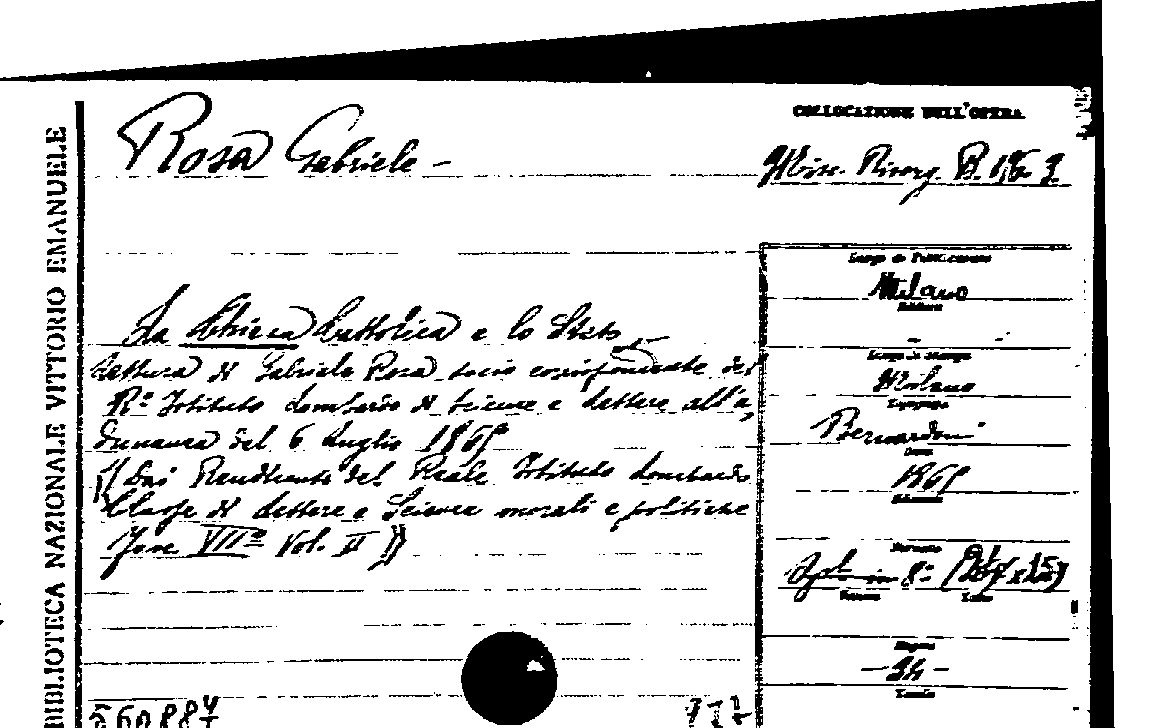 BIBLIOTECA NAZIONALE VITTORIO EMANUELE
Rosa Gabriele -
COLLOCAZIONE DELL'OPERA
Misc. Risorg. B.
La Chiesa Cattolica e lo Stato
lettura di Gabriele Rosa socio corrispondente del
R.º Istituto Lombardo di Scienze e Lettere all'a,
dunanza del 6 Luglio 1865
((Dai Rendiconti del Reale Istituto Lombardo
Classe di Lettere e Scienze morali e politiche
Fasc VIIº Vol. II))
Luogo di Pubblicazione
Milano
Editore
-
Luogo di Stampa
Milano
Tipografo
Bernardoni
Data
1865
Edizione
Formato
in 8º
Pagine
- 24 -
560887